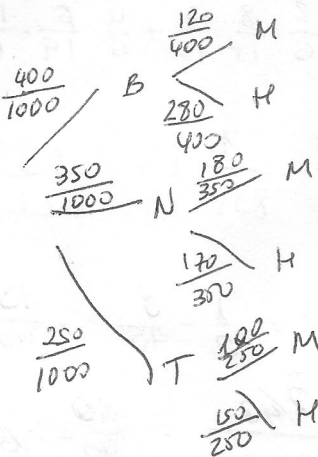 120/400 M
400/1000 B
280/400 H
350/1000 N 180/350 M
170/350 H
250/1000 T 100/250 M
150/250 H